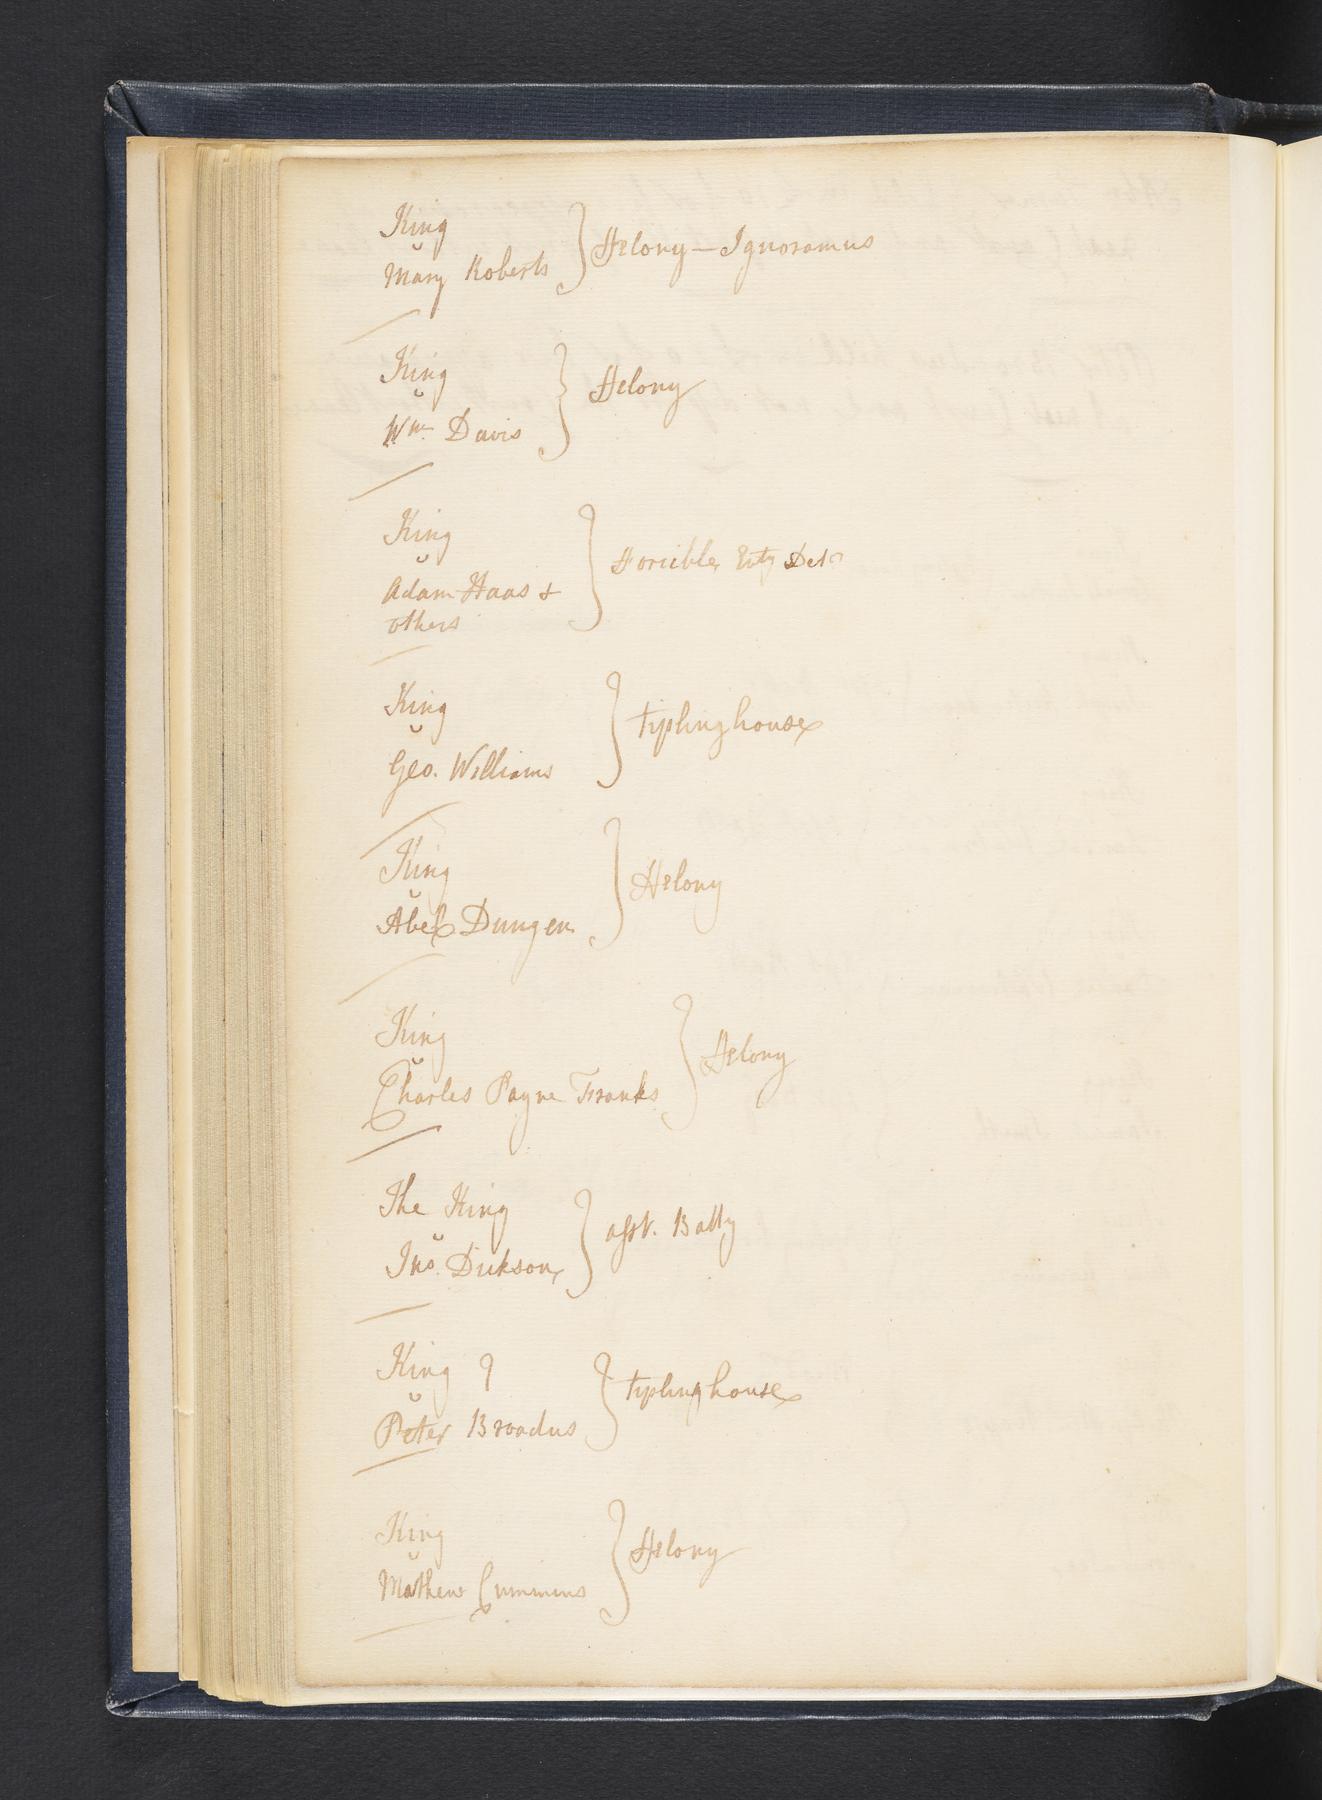 King
v
Mary Roberts } Felony — Ignoramus
King
v
Wm. Davis } Felony
King
v
Adam Haas &
others } Forcible Enty Detr
King
v
Geo. Williams } tiplinghouse
King
v
Abel Dungen } Felony
King
v
Charles Payne Franks } Felony
The King
v
Jno. Dickson } asst. Batty
King
v
Peter Broadus } tiplinghouse
King
v
Mathew Cummins } Felony